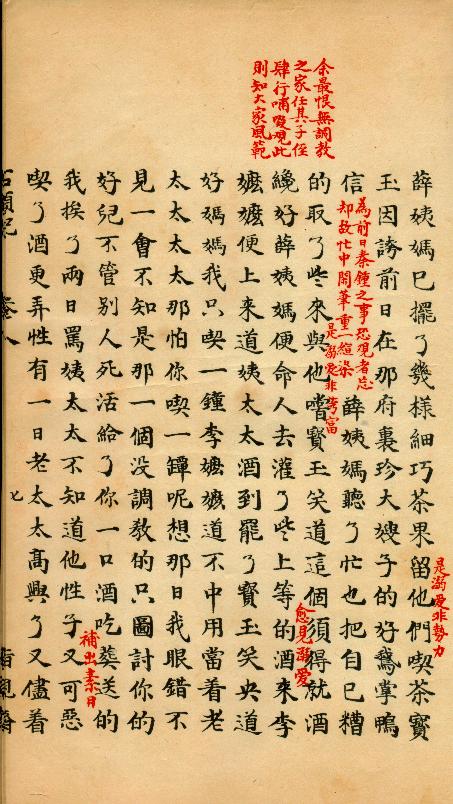 余最恨無調教
之家任其子侄
肆行哺啜觀此
則知大家風範
薛姨媽已擺了幾樣細巧茶果留他們喫茶寳
是溺愛非勢力
玉因誇前日在那府裏珍大嫂子的好鵝掌鴨
信
為前日秦鍾之事恐觀者忘
却故忙中閒筆重一渲染
薛姨媽聽了忙也把自已糟
的取了些來與他嚐
是溺愛非夸富
寳玉笑道這個須得就酒
纔好薛姨媽便命人去灌了些上等的酒來李
愈見溺愛
嬷嬷便上来道姨太太酒到罷了寳玉笑央道
好媽媽我只喫一鐘李嬷嬷道不中用當着老
太太太太那怕你喫一罈呢想那日我眼錯不
見一會不知是那一個没調教的只圖討你的
好兒不管别人死活給了你一口酒吃葬送的
我挨了兩日罵姨太太不知道他性子又可惡
補出素日
喫了酒更弄性有一日老太太高興了又儘着
七